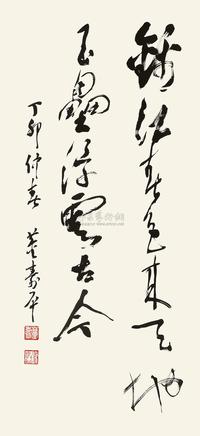 錦江春色來天地
玉壘浮雲古今
丁卯仲春 董壽平